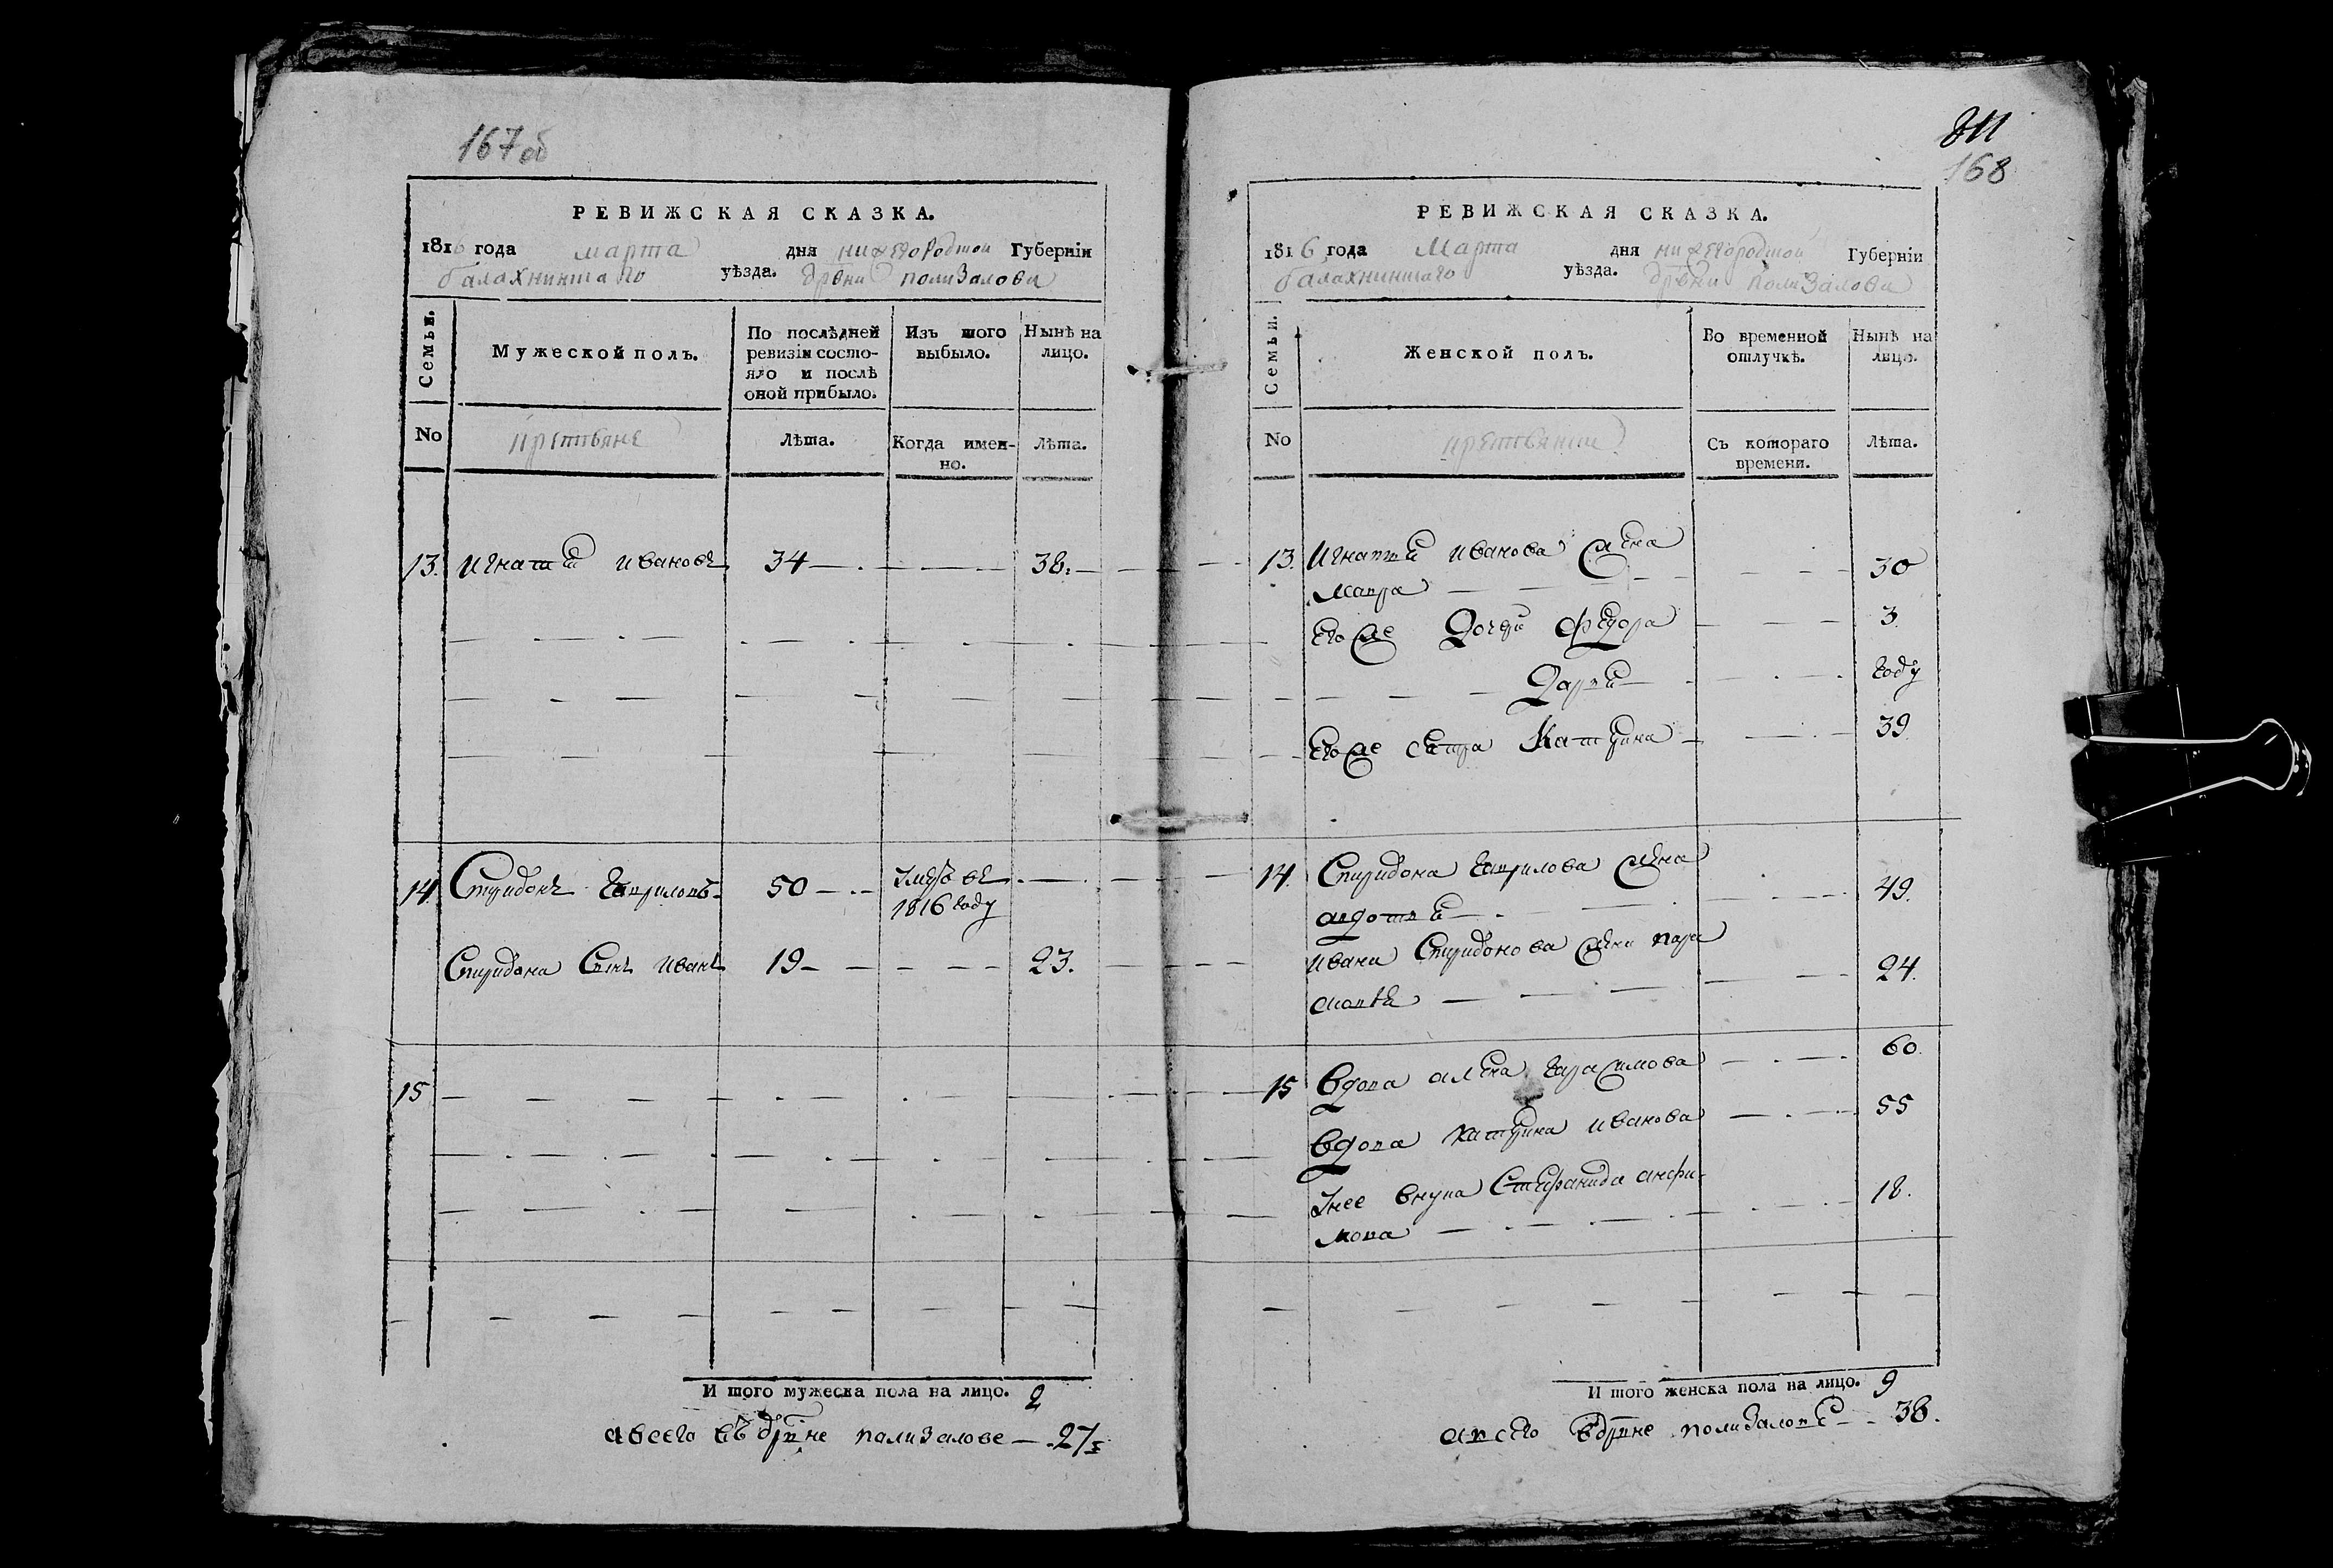 167 об
РЕВИЖСКАЯ СКАЗКА.
1816 года марта дня нижегородской Губерніи
балахнинскаго уѣзда. дрвни полизалови
Семьи.
Мужеской полъ.
По послѣдней ревизіи состояло и послѣ оной прибыло.
Изъ того выбыло.
Нынѣ на лицо.
No
крестьяне
Лѣта.
Когда именно.
Лѣта.
13. игнатей ивановъ 34 38.
14. Спиридонъ гавриловъ 50 умръ въ
1816 году
Спиридона Сынъ иванъ 19 23.
15
И того мужеска пола на лицо. 2
а всего въ дрвне полизалове 27
811
168
РЕВИЖСКАЯ СКАЗКА.
1816 года Марта дня нижегородской Губерніи
балахнинскаго уѣзда. дрвни полизалови
Семьи.
Женской полъ.
Во временной отлучкѣ.
Нынѣ на лицо.
No
крестьянки
Съ котораго времени.
Лѣта.
13. Игнатей иванова жена
мавра 30
его же дочери федора 3
дарья году
его же сестра Катерина 39
14. Спиридона гаврилова жена
авдотья 49.
ивана Спиридонова жена пара
сковья 24.
15 вдова алена гарасимова 60.
вдова катерина иванова 55
унее внука Стефанида анфи-
мова 18.
И того женска пола на лицо. 9
а всего вдрвне полизалове 38.